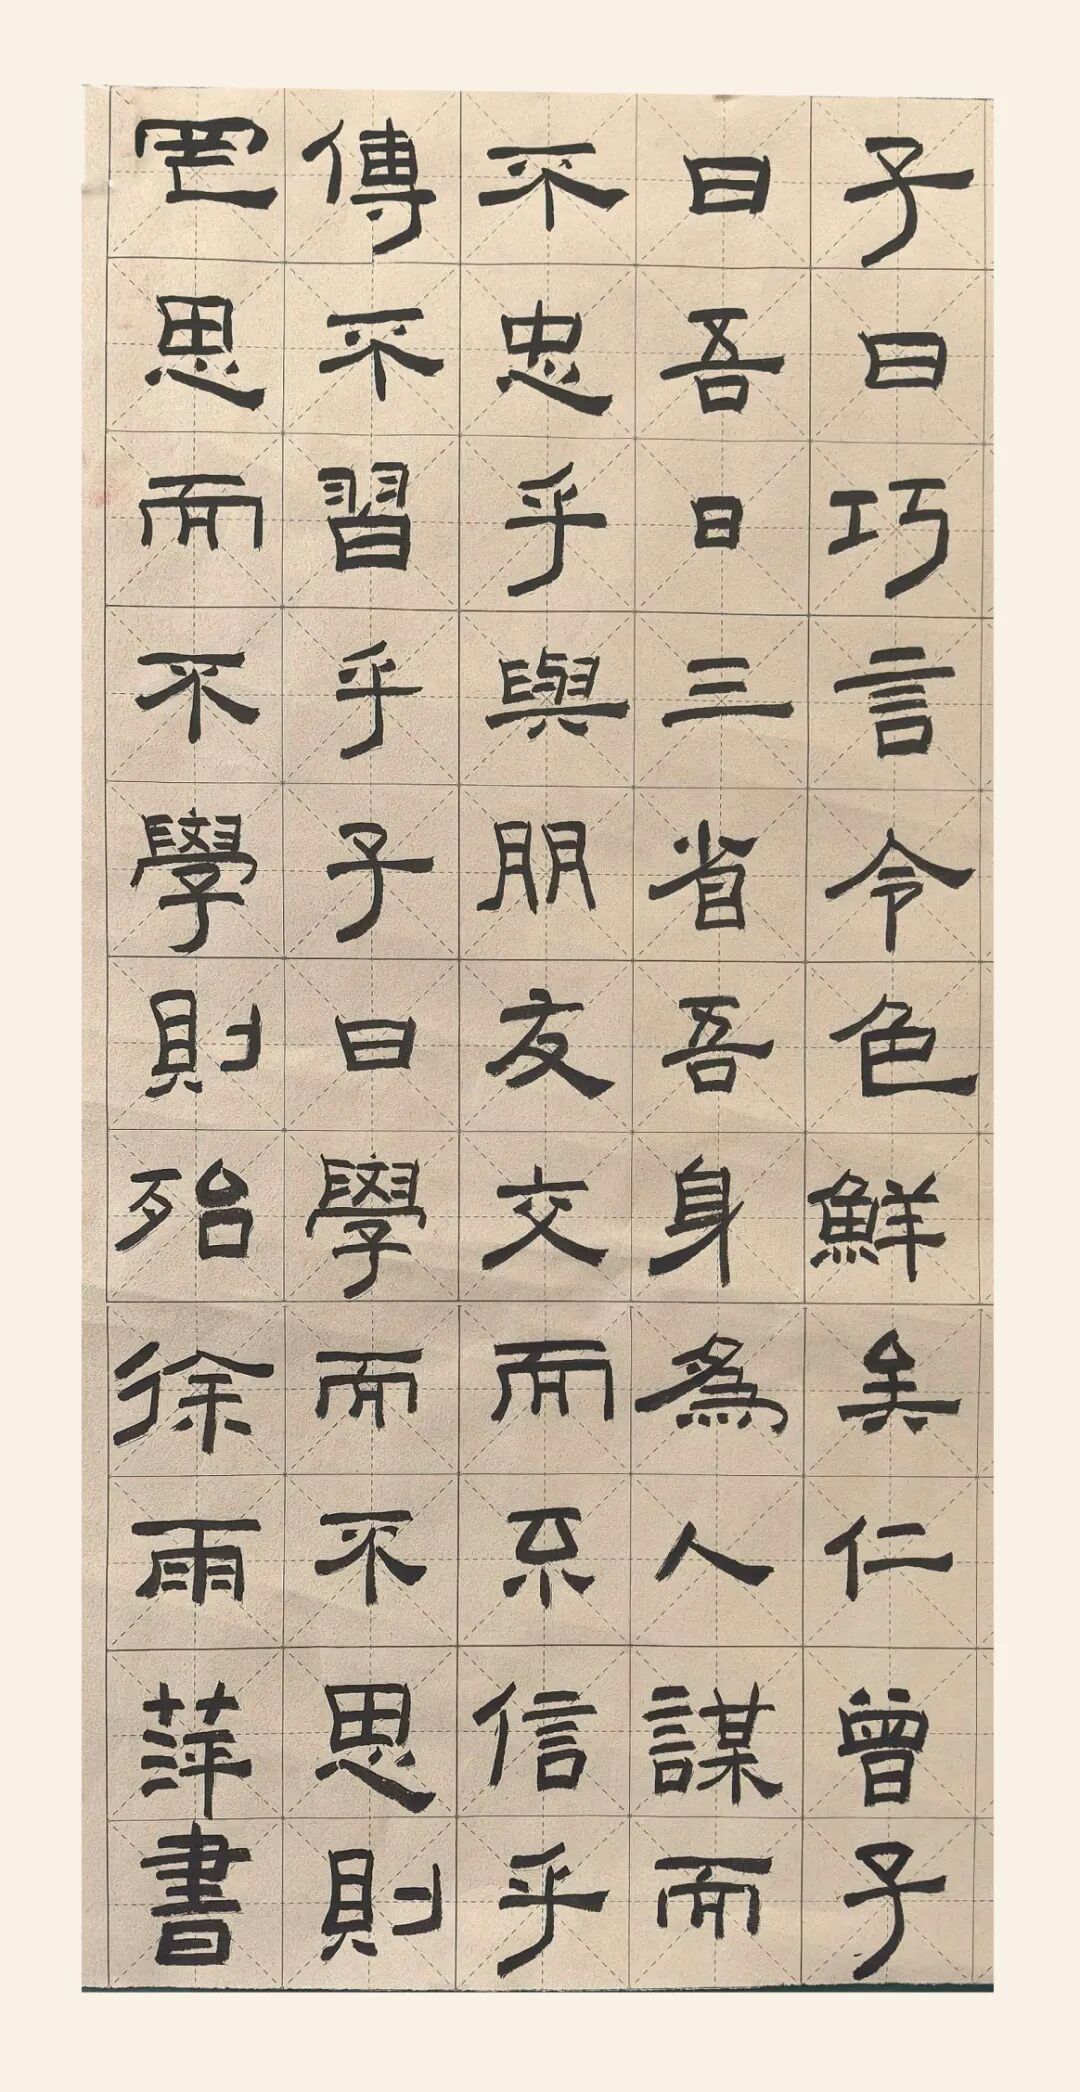 子曰巧言令色鮮矣仁曾子
曰吾日三省吾身為人謀而
不忠乎與朋友交而不信乎
傳不習乎子曰學而不思則
罔思而不學則殆徐雨萍書